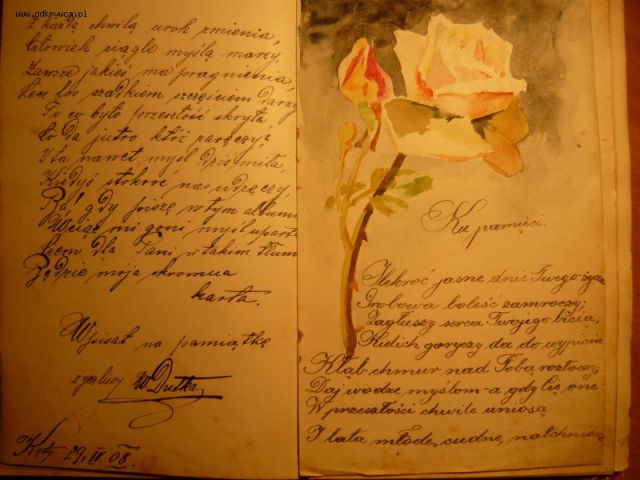 www.odkrywca.pl
Z każdą chwilą urok zmienia,
Człowiek ciągle myślą marzy,
Zawsze jakieś ma pragnienia,
Lecz los rzadkiem szczęściem darzy
To co było przeszłość skryła,
Co da jutro któż zaręczy?
I ta nawet myśl dziś miła,
Kiedyś stokroć nas udręczy,
Ba! gdy piszę w tym albumie
Wciąż mi goni myśl uparta
Czem dla Pani w takim tłumie
Będzie moja skromna
karta.
Wpisał na pamiątkę
życzliwy W Dutka
Kęty 29. IV. 08.
Ku pamięci.
Ilekroć jasne dnie Twego życia
Grobowa boleść zamroczy;
Zagłuszy serca Twojego bicia,
Kielich goryczy da do wypicia
Kłąb chmur nad Tobą roztoczy,
Daj wodze myślom - a gdy Cię one
W przeszłości chwile uniosą
I lata młode, cudne, natchnione